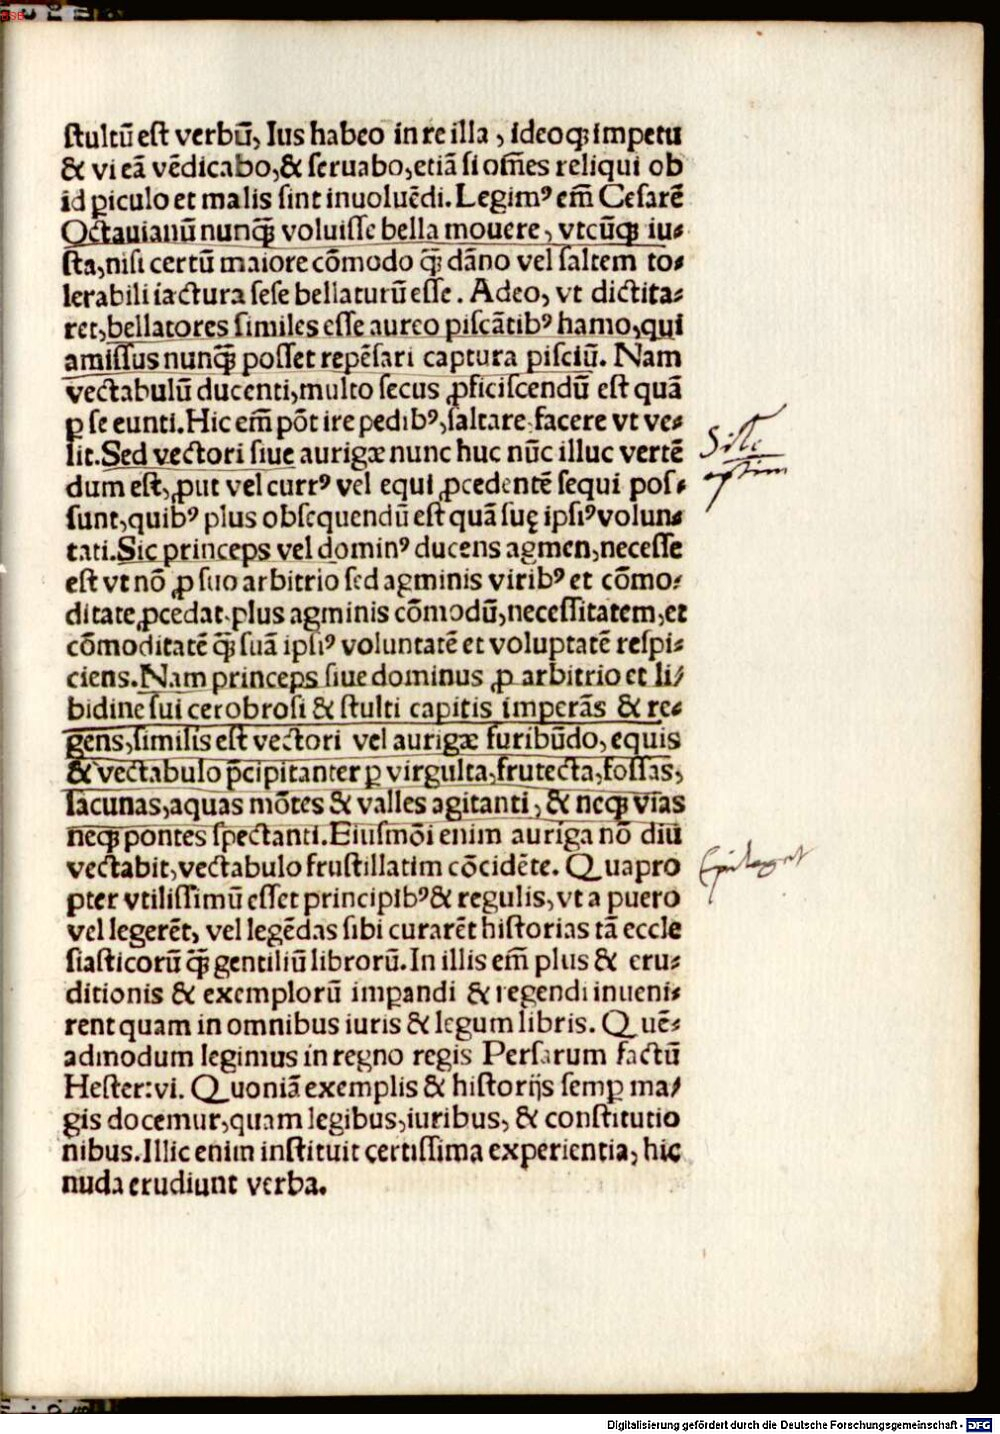 ſtultū eſt verbū, Ius habeo in re illa, ideoqꝫ impetu
& vi eā vēdicabo, & ſeruabo, etiā ſi om̄es reliqui ob
id ꝑiculo et malis ſint inuoluēdi. Legimꝰ em̄ Ceſarē
Octauianū nunqꝫ̄ voluiſſe bella mouere, vtcūqꝫ iu⸗
ſta, niſi certū maiore cōmodo qꝫ̄ dāno vel ſaltem to⸗
lerabili iactura ſeſe bellaturū eſſe. Adeo, vt dictita⸗
ret, bellatores ſimiles eſſe aureo piſcātibꝰ hamo, qui
amiſſus nunqꝫ̄ poſſet repēſari captura piſciū. Nam
vectabulū ducenti, multo ſecus ꝓficiſcendū eſt quā
ꝑ ſe eunti. Hic em̄ pōt ire pedibꝰ, ſaltare, facere vt ve⸗
lit. Sed vectori ſiue aurigæ nunc huc nūc illuc vertē
dum eſt, ꝓut vel currꝰ vel equi ꝓcedentē ſequi poſ⸗
ſunt, quibꝰ plus obſequendū eſt quā ſuę ipſiꝰ volun⸗
tati. Sic princeps vel dominꝰ ducens agmen, neceſſe
eſt vt nō ꝓ ſuo arbitrio ſed agminis viribꝰ et cōmo⸗
ditate ꝓcedat, plus agminis cōmodū, neceſſitatem, et
cōmoditatē qꝫ̄ ſuā ipſiꝰ voluntatē et voluptatē reſpi⸗
ciens. Nam princeps ſiue dominus ꝓ arbitrio et li⸗
bidine ſui cerobroſi & ſtulti capitis imperās & re⸗
gens, ſimilis eſt vectori vel aurigæ furibūdo, equis
& vectabulo p̄cipitanter ꝑ virgulta, frutecta, foſſas,
lacunas, aquas mōtes & valles agitanti, & neqꝫ vias
neqꝫ pontes ſpectanti. Eiuſmōi enim auriga nō diu
vectabit, vectabulo fruſtillatim cōcidēte. Quapro
pter vtiliſſimū eſſet principibꝰ & regulis, vt a puero
vel legerēt, vel legēdas ſibi curarēt hiſtorias tā eccle
ſiaſticorū qꝫ̄ gentiliū librorū. In illis em̄ plus & eru⸗
ditionis & exemplorū imꝑandi & regendi inueni⸗
rent quam in omnibus iuris & legum libris. Quē⸗
admodum legimus in regno regis Perſarum factū
Heſter: vi. Quoniā exemplis & hiſtorijs ſemꝑ ma⸗
gis docemur, quam legibus, iuribus, & conſtitutio
nibus. Illic enim inſtituit certiſſima experientia, hic
nuda erudiunt verba.
Digitalisierung gefördert durch die Deutsche Forschungsgemeinschaft - DFG